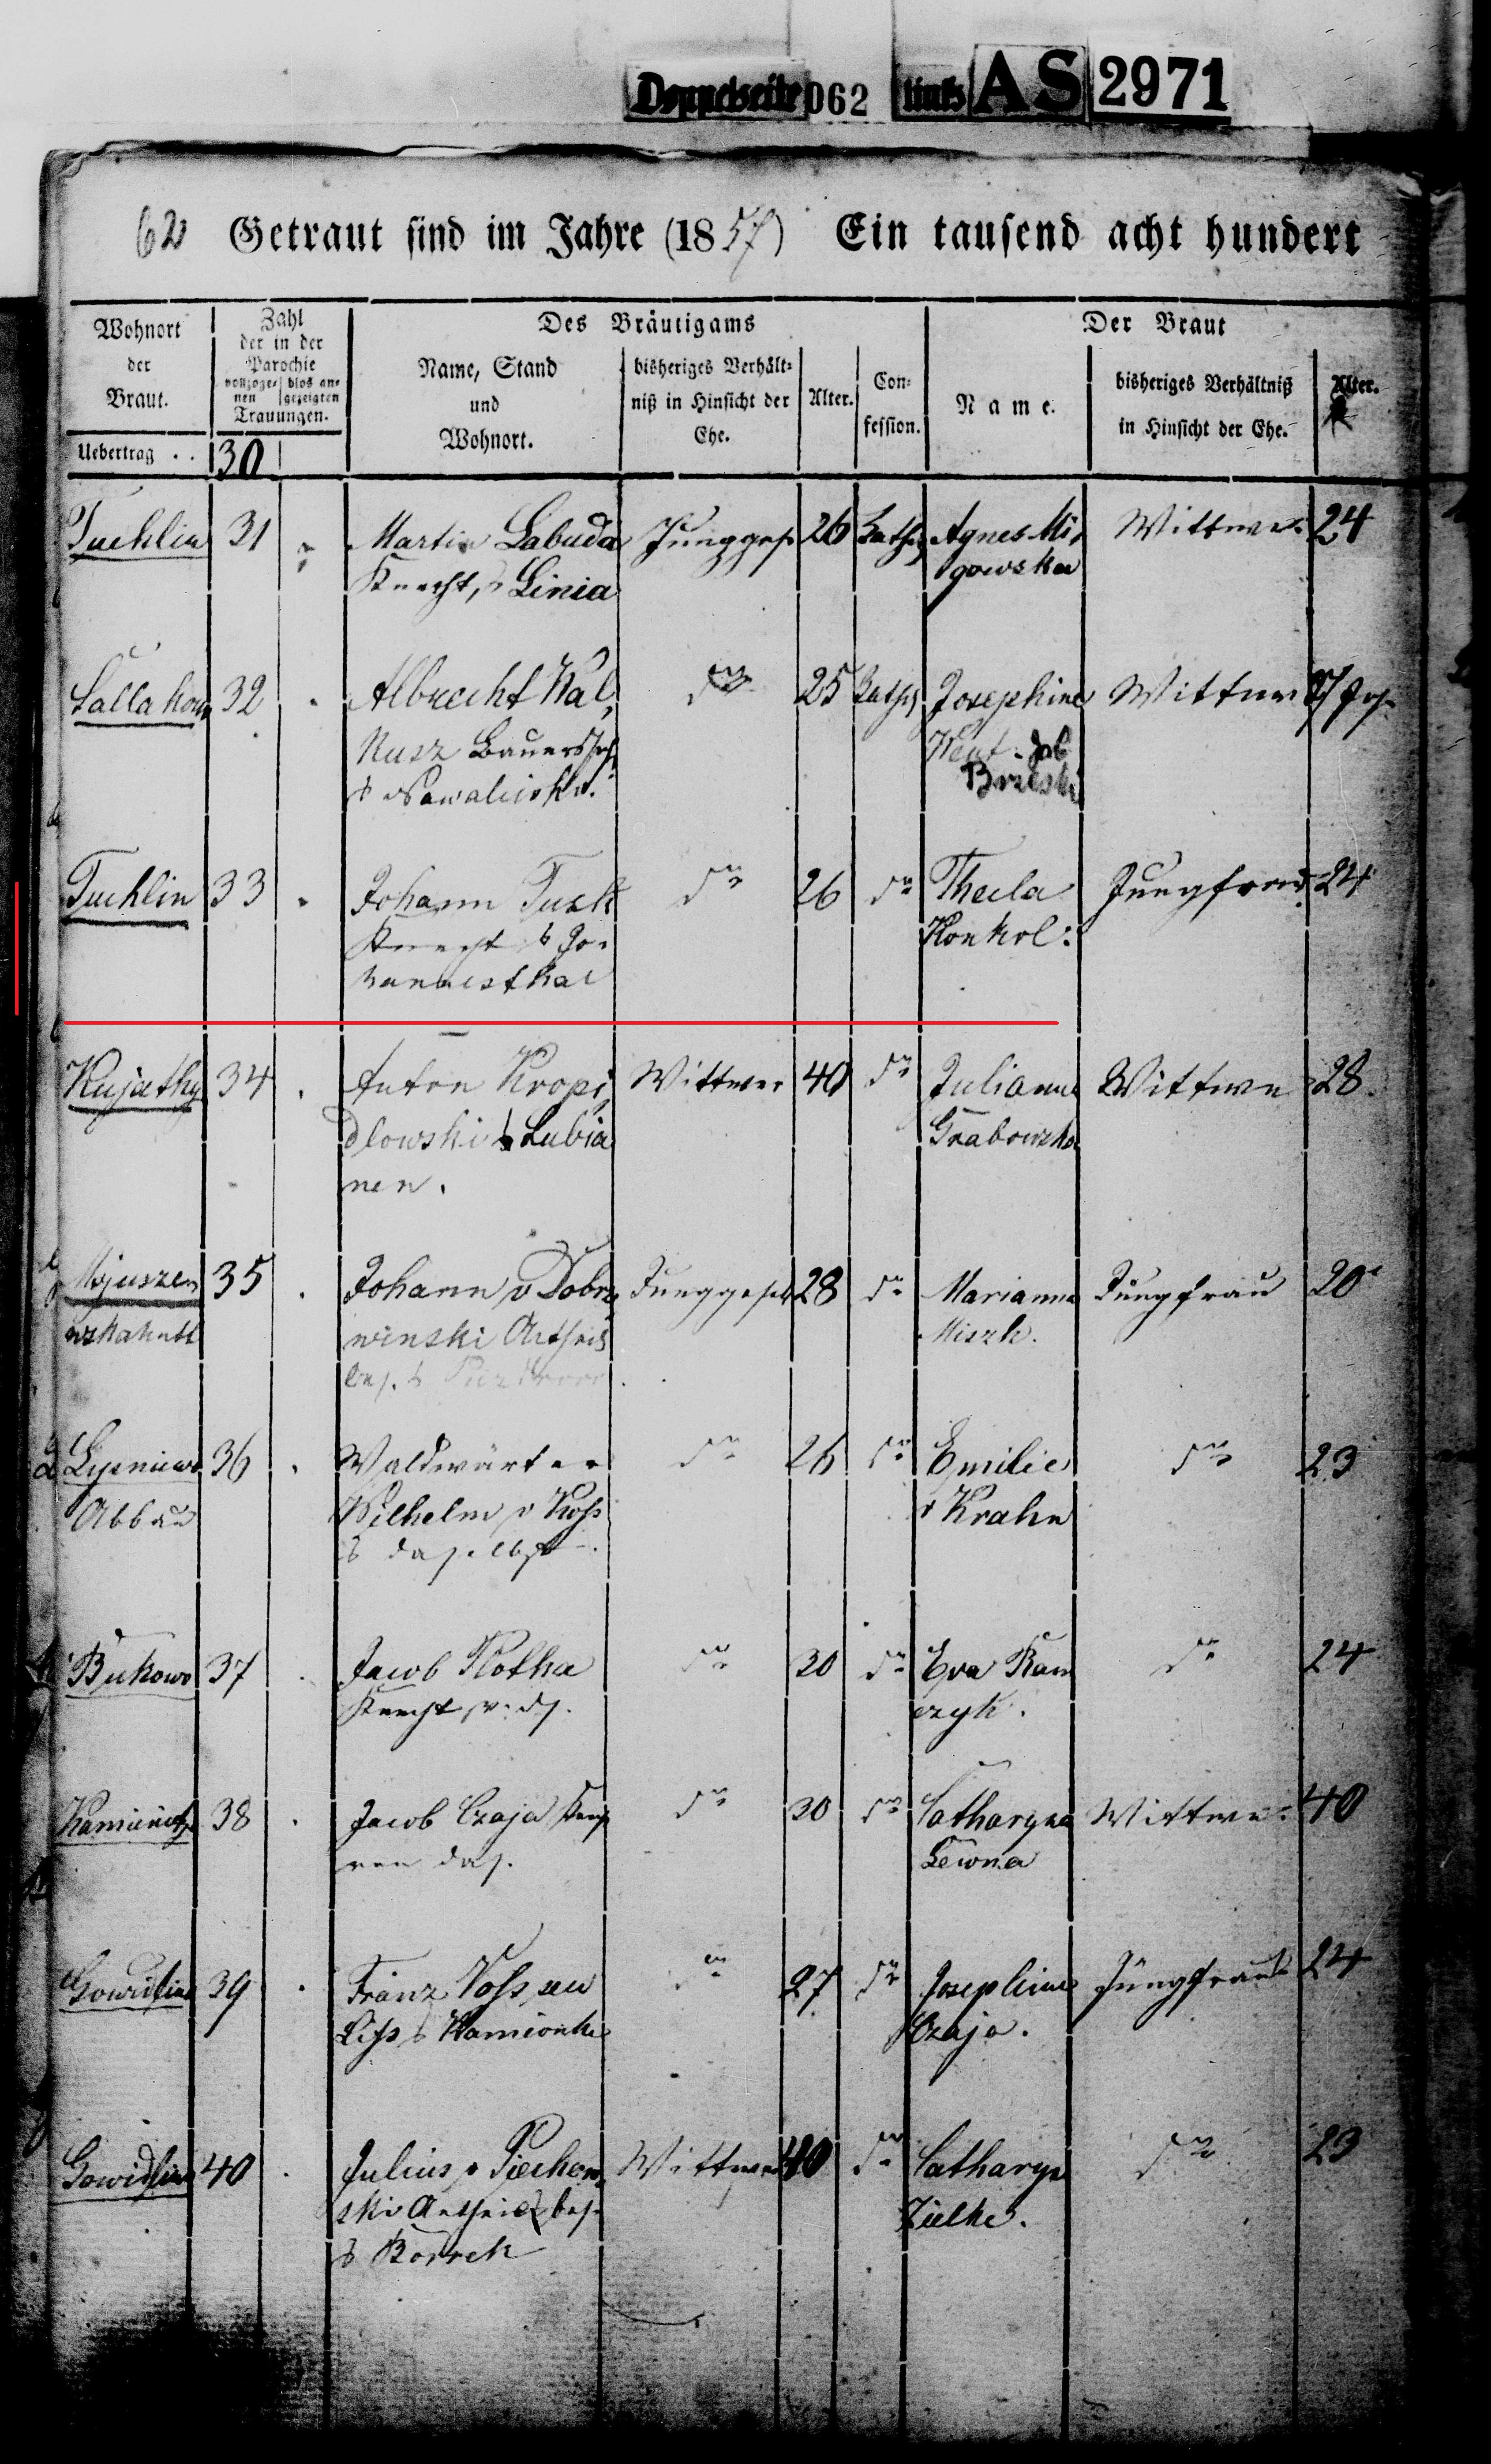 Doppelseite 062 links AS 2971
62 Getraut sind im Jahre (1857) Ein tausend acht hundert
Wohnort der Braut.
Zahl der in der Parochie
vollzogenen | blos angezeigten
Trauungen.
Des Bräutigams
Name, Stand und Wohnort.
bisheriges Verhältniß in Hinsicht der Ehe.
Alter.
Confession.
Der Braut
Name.
bisheriges Verhältniß in Hinsicht der Ehe.
Alter.
Uebertrag . . 30
Tuchlin 31 Martin Labuda Jungges 26 Kathol Agnes Mi, Wittwe 24
Knecht, Linia gowska
32 Albrecht Kal, do 25 Kath Josephine Wittwe
Kusz Bauerssohn geb
Brzeski
Tuchlin 33 Johann Tusk do 26 do Thecla Jungfrau 24
Knecht Jo- Konkol.
hannesthal
Kujathy 34 Anton Kropi, Wittwer 40 do Julianna Wittwe 28
dlowski Lubia Grabowska
nen.
Mojuszer 35 Johann v Dobrz, Junggesell 28 do Marianna Jungfrau 20
winski Antheils Miszk.
bes.
36 Waldwärter do 26 do Emilie do 23
Abbau Wilhelm v Koss v Krahn
daselbst
Bukowo 37 Jacob Plotka do 30 do Eva Kam do 24
Knecht v. ds. czyk.
Kamienitz 38 Jacob Czaja Knecht do 30 do Catharyna Wittwe 40
von das. Lewna
Gowidlino 39 Franz Voss, do 27 do Josephine Jungfrau 24
Kamionke Czaja.
Gowidlino 40 Julius v Piechow, Wittwer 40 do Catharyna do 23
ski Antheilsbes. Zielke.
Borrek